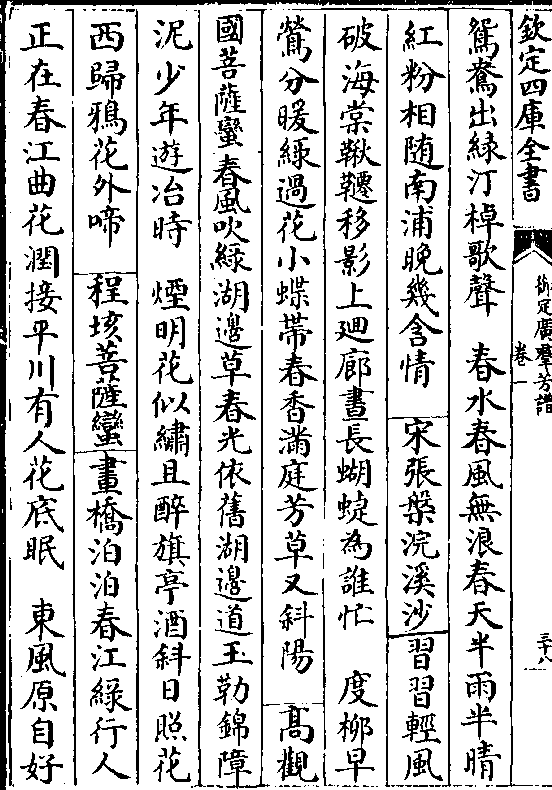 欽定四庫全書
御定廣羣芳譜
卷一
三十八
鴛鴦出緑汀棹歌聲　春水春風無浪春天半雨半晴
紅粉相随南浦晚幾含情　宋張槃浣溪沙習習輕風
破海棠鞦韆移影上廻廊晝長蝴蜨為誰忙　度柳早
鶯分暖緑過花小蝶帯春香滿庭芳草又斜陽　髙觀
國菩薩蠻春風吹緑湖邉草春光依舊湖邉道玉勒錦障
泥少年遊冶時　煙明花似繡且醉旗亭酒斜日照花
西歸鴉花外啼　程垓菩薩蠻畫橋泊泊春江緑行人
正在春江曲花潤接平川有人花底眠　東風原自好